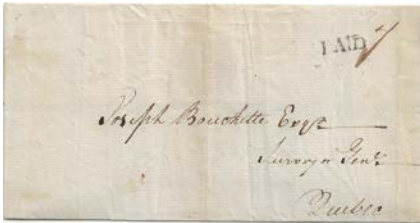 PAID 7
Joseph Bouchette Esqr
Surveyor Genl
Quebec